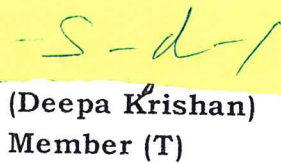 -S-d-/
(Deepa Krishan)
Member (T)